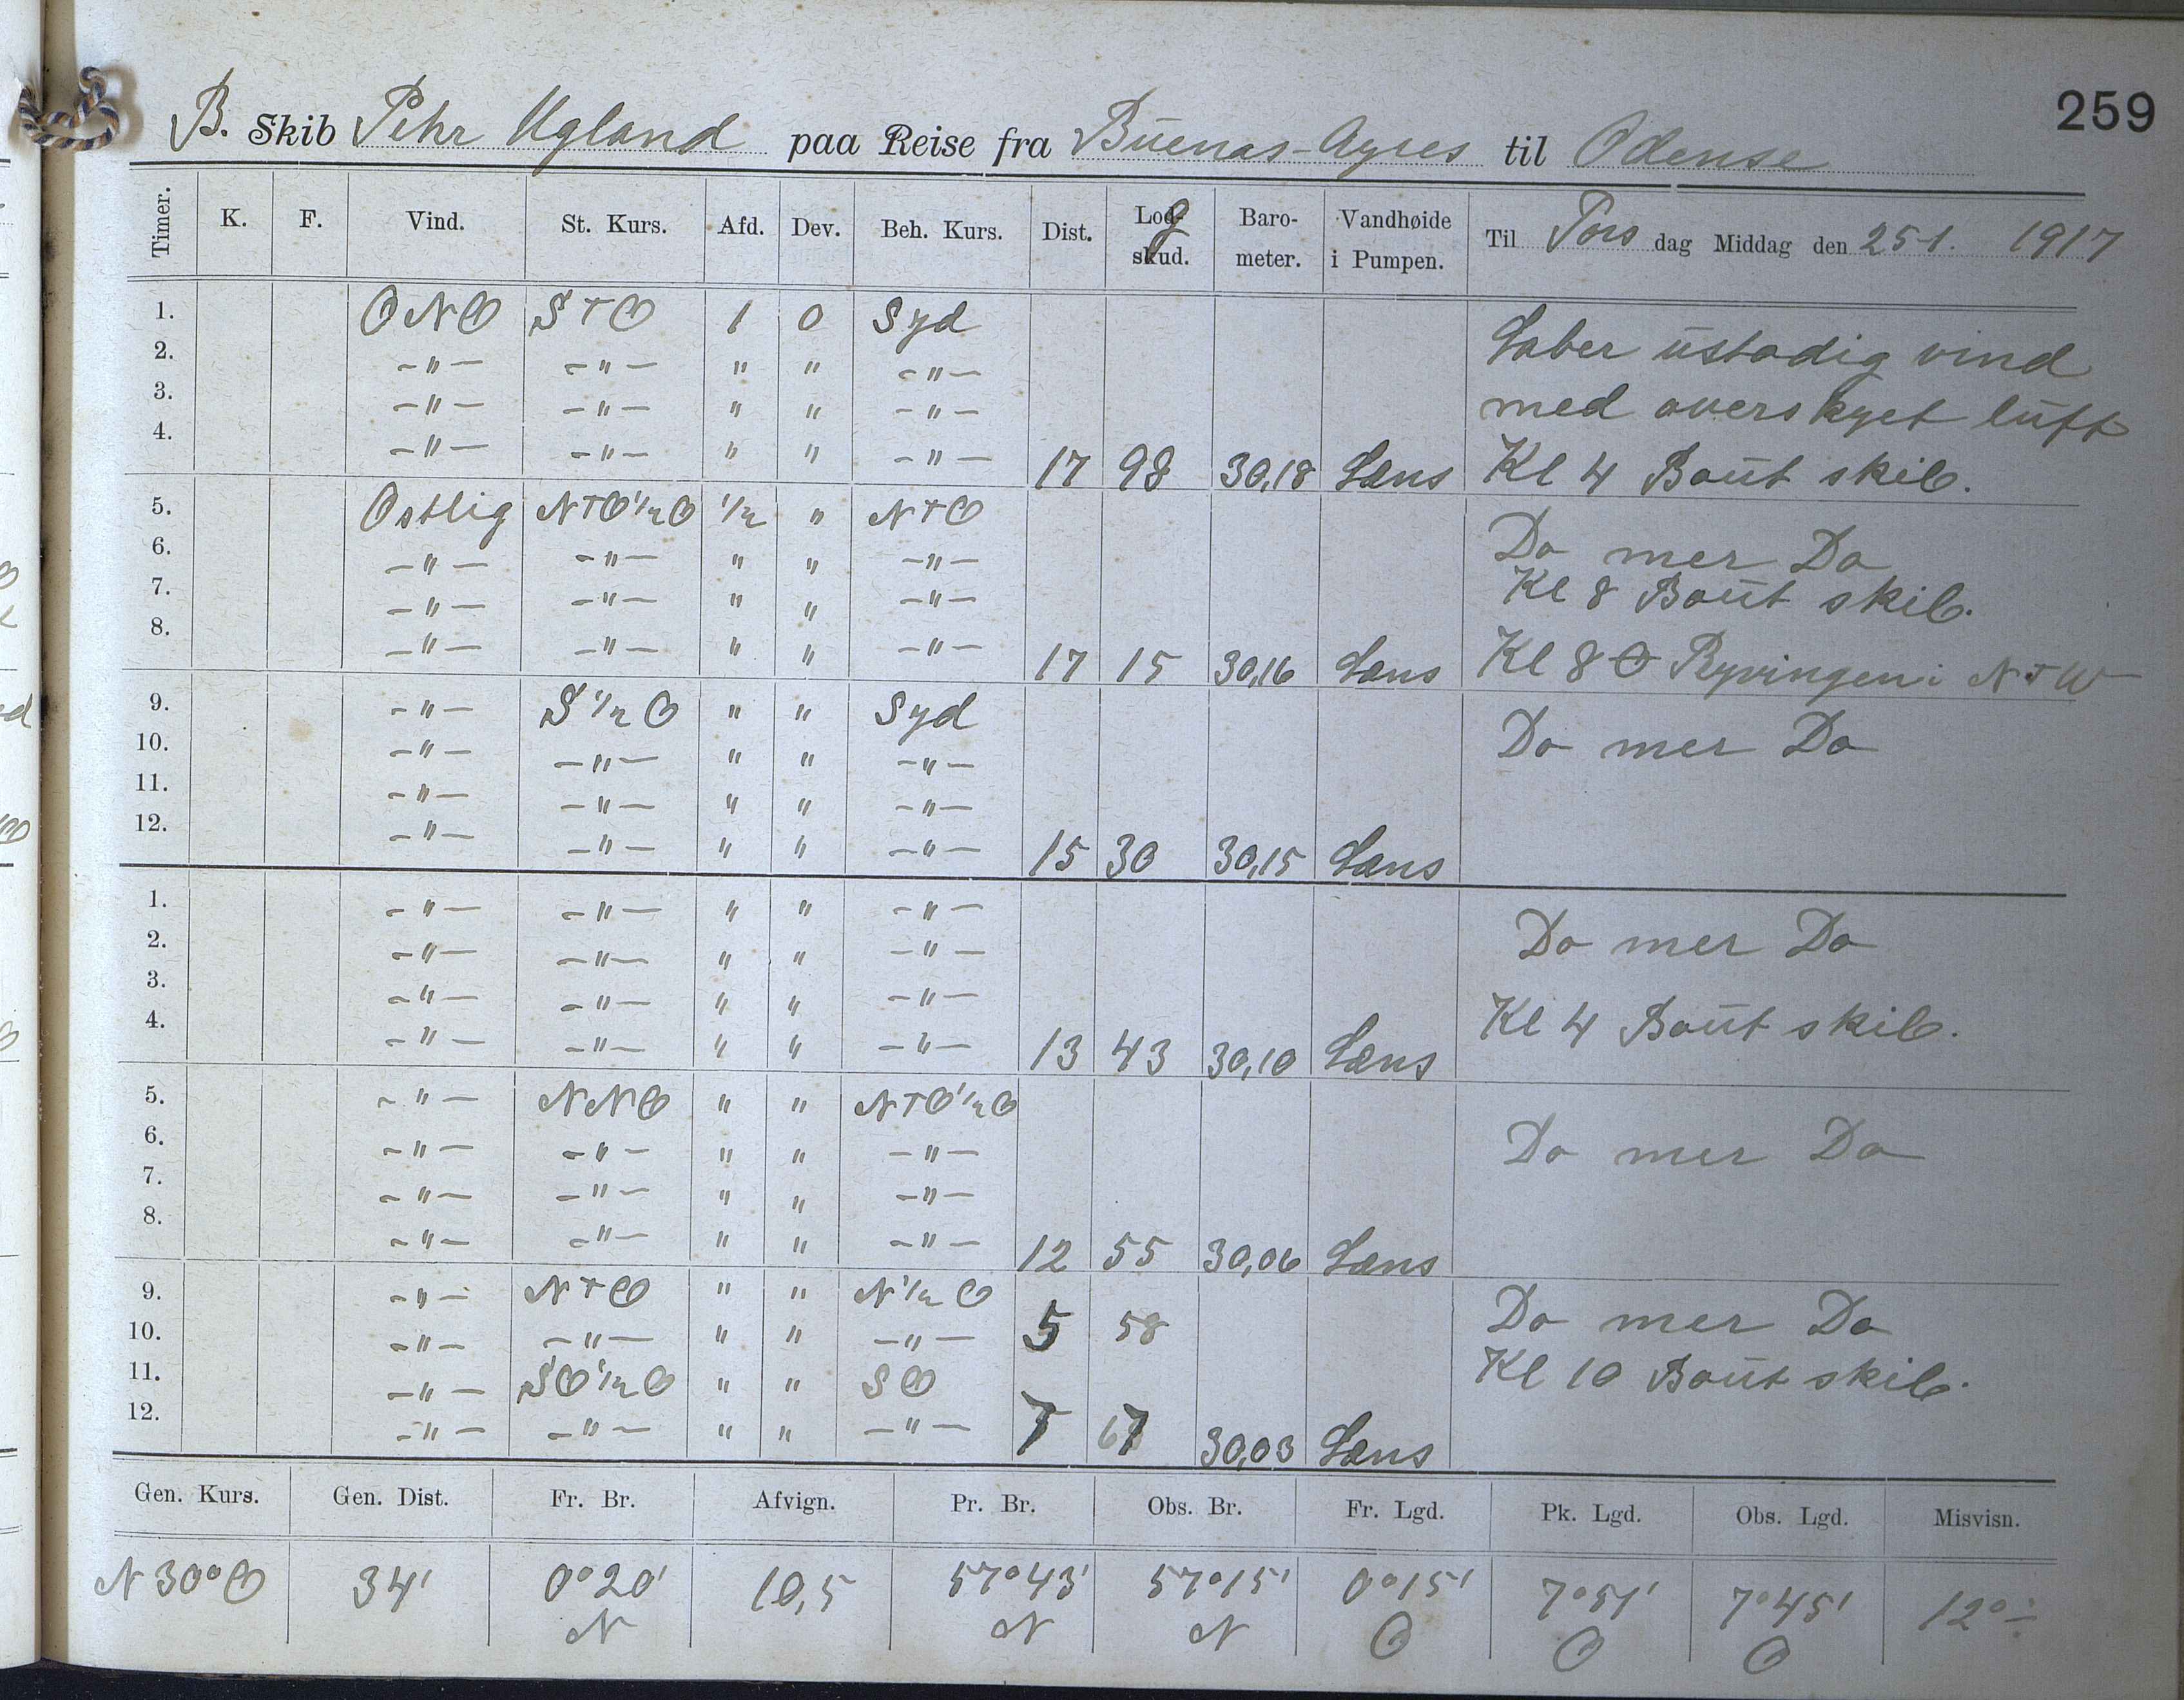 259
B. Skib Pehr Ugland paa Reise fra Buenas-Ayres til Odense
Timer. K. F. Vind. St. Kurs. Afd. Dev. Beh. Kurs. Dist. Log skud. Baro- meter. Vandhøide i Pumpen. Til Tors dag Middag den 25-1. 1917
1. ONO S t O 1 0 Syd
2. -"- -"- " " -"- Laber ustadig vind
3. -"- -"- " " -"- med overskyet luft
4. -"- -"- " " -"- 17 98 30,18 Læns Kl 4 Bout skib.
5. Ostlig N t O 1/2 O 1/2 " N t O
6. -"- -"- " " -"- Do mer Do
7. -"- -"- " " -"- Kl 8 Bout skib.
8. -"- -"- " " -"- 17 15 30,16 Læns Kl 8 Ryvingen i N t W
9. -"- S 1/2 O " " Syd
10. -"- -"- " " -"- Do mer Do
11. -"- -"- " " -"-
12. -"- -"- " " -"- 15 30 30,15 Læns
1. -"- -"- " " -"-
2. -"- -"- " " -"- Do mer Do
3. -"- -"- " " -"-
4. -"- -"- " " -"- 13 43 30,10 Læns Kl 4 Bout skib.
5. -"- NNO " " N t O 1/2 O
6. -"- -"- " " -"- Do mer Do
7. -"- -"- " " -"-
8. -"- -"- " " -"- 12 55 30,06 Læns
9. -"- N t O " " N 1/2 O
10. -"- -"- " " -"- 5 58 Do mer Do
11. -"- SO 1/2 O " " SO Kl 10 Bout skib.
12. -"- -"- " " -"- 7 67 30,03 Læns
Gen. Kurs. Gen. Dist. Fr. Br. Afvign. Pr. Br. Obs. Br. Fr. Lgd. Pk. Lgd. Obs. Lgd. Misvisn.
N 30° O 34' 0°20' 10,5 57°43' 57°15' 0°15' 7°51' 7°45' 12° ÷
N N N O O O